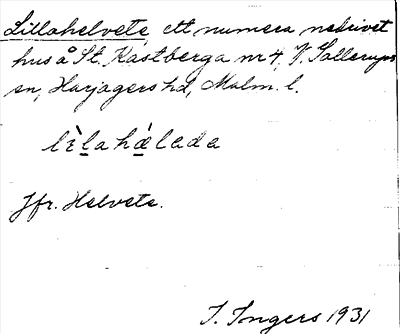 Lillahelvete, ett numera nedrivet
hus å St. Kastberga nr 4, V. Sallerups
sn, Harjagers hd, Malm. l.
lìlahǽlada
Jfr. Helvete.
I. Ingers 1931